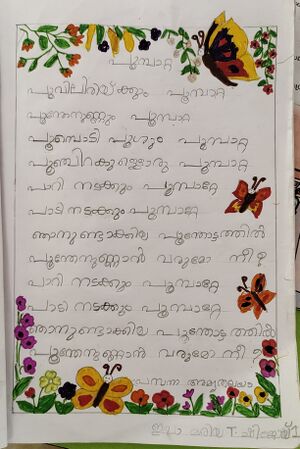 പൂമ്പാറ്റ
പൂവിലിരിയ്ക്കും പൂമ്പാറ്റ
പൂന്തേനുണ്ണും പൂമ്പാറ്റ
പൂമ്പൊടി പൂശും പൂമ്പാറ്റ
പൂഞ്ചിറകുള്ളൊരു പൂമ്പാറ്റ
പാറി നടക്കും പൂമ്പാറ്റേ
പാടി നടക്കും പൂമ്പാറ്റേ
ഞാനുണ്ടാക്കിയ പൂന്തോട്ടത്തിൽ
പൂന്തേനുണ്ണാൻ വരുമോ നീ?
പാറി നടക്കും പൂമ്പാറ്റേ
പാടി നടക്കും പൂമ്പാറ്റേ
ഞാനുണ്ടാക്കിയ പൂന്തോട്ടത്തിൽ
പൂന്തേനുണ്ണാൻ വരുമോ നീ?
പ്രസന്ന
മരിയ T.